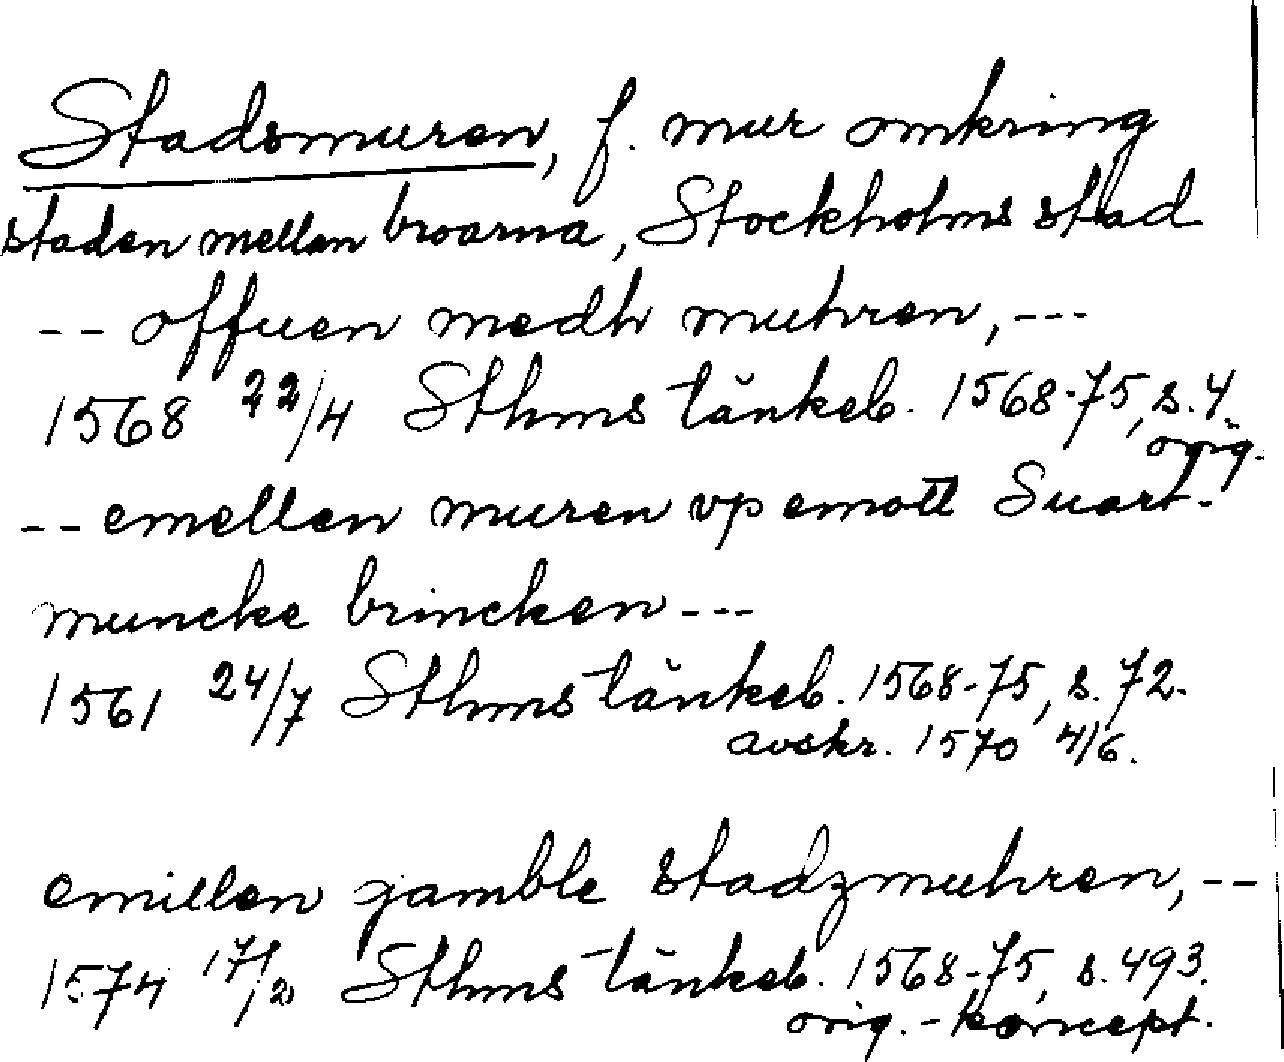 Stadsmuren, f. mur omkring
staden mellan broarna, Stockholms stad
-- offuen medh muhren, ---
1568 22/4 Sthms tänkeb. 1568-75, s. 4.
orig.
-- emellen muren vp emott Suart-
muncke brincken ---
1561 24/7 Sthms tänkeb. 1568-75, s. 72.
avskr. 1570 4/6.
emillen gamble stadzmuhren, --
1574 17/2 Sthms tänkeb. 1568-75, s. 493.
orig. - koncept.